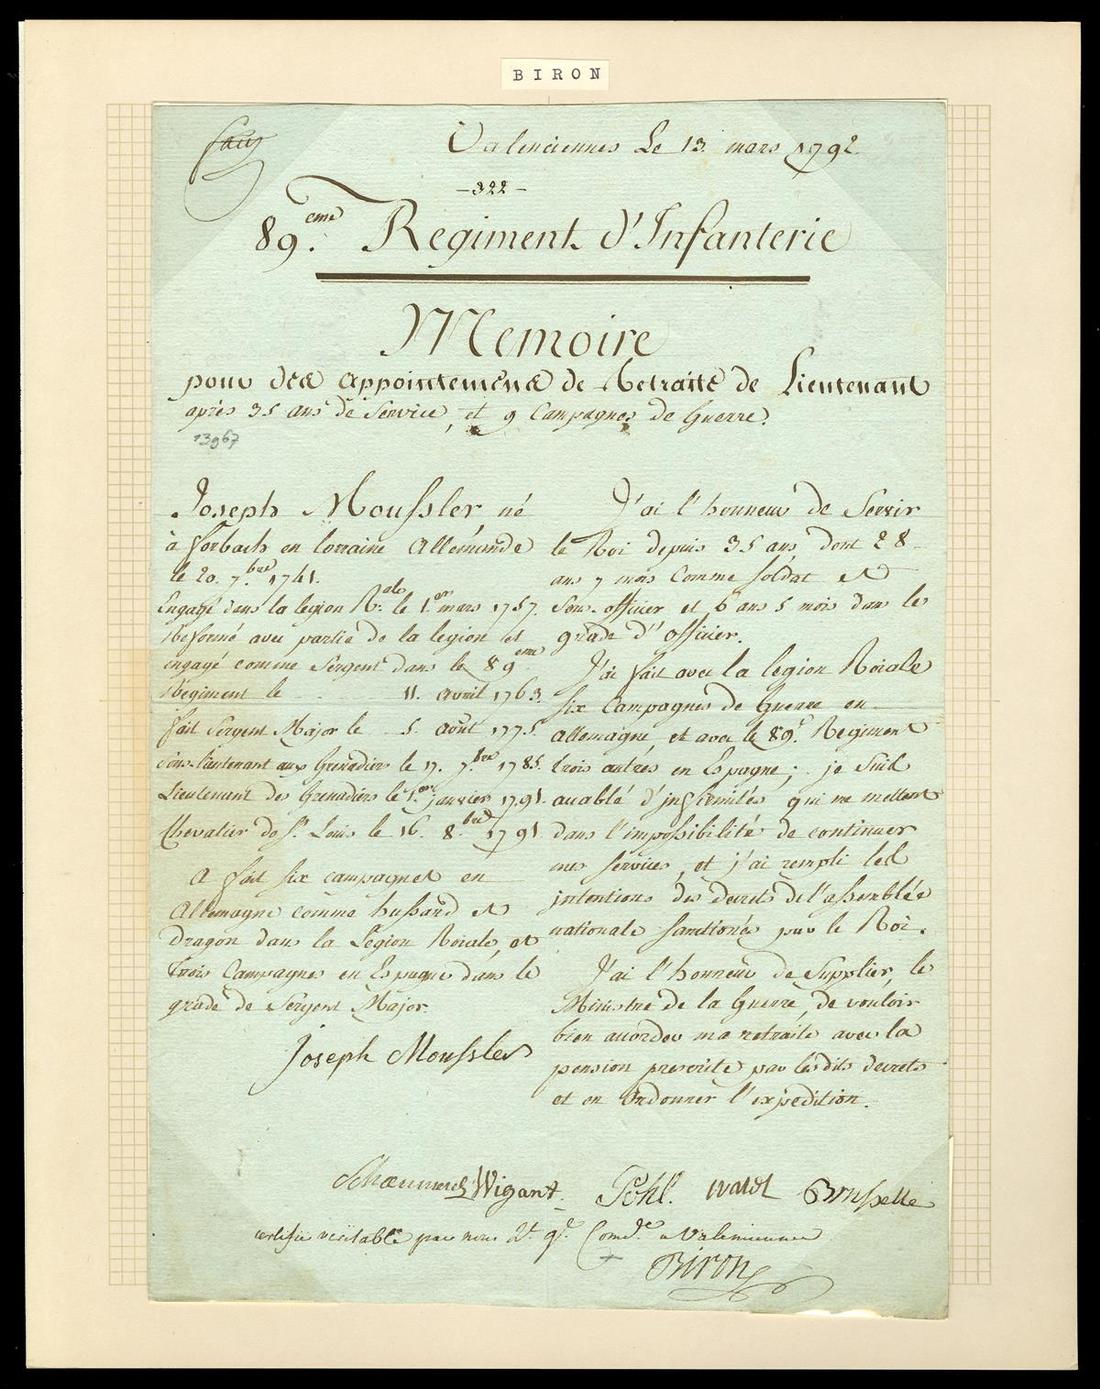 BIRON
Valenciennes Le 13. mars 1792
-322-
89.eme Regiment d'Infanterie
Memoire
pour des appointemens de Retraite de Lieutenant
après 35 ans de Service, et 9 Campagnes de Guerre.
13967
Joseph Moussler né
à forbach en lorraine Allemande
le 20. 7.bre 1741.
Engagé dans la legion R.ale le 1.er mars 1757.
Reformé avec partie de la legion et
engagé comme Sergent dans le 89eme
Régiment le 11. avril 1763.
fait Sergent Major le 5. août 1775.
Sous-Lieutenant aux Grenadiers le 17. 7.bre 1785.
Lieutenant des Grenadiers le 1.er janvier 1791.
Chevalier de S.t Louis le 16. 8.bre 1791
A fait six campagnes en
Allemagne comme hussard et
Dragon dans la Legion Roiale, et
trois Campagnes en Espagne dans le
grade de Sergent Major.
Joseph Moussler
J'ai l'honneur de Servir
le Roi depuis 35 ans, dont 28
ans 7 mois comme soldat et
sous-officier et 6 ans 5 mois dans le
grade d'officier.
J'ai fait avec la legion Roiale
six Campagnes de Guerre en
allemagne, et avec le 89.e Regiment
trois autres en Espagne; je suis
accablé d'infirmités qui me mettent
dans l'impossibilité de continuer
mes services, et j'ai rempli les
intentions des decrets de l'assemblée
nationale sanctionés par le Roi.
J'ai l'honneur de Supplier, le
Ministre de la Guerre, de vouloir
bien accorder ma retraite avec la
pension prescrite par les dits decrets
et en ordonner l'expedition.
Wigant. Pohl. Brusselle
certifié véritable par nous Lt. gl. Comd.t a Valenciennes
Biron